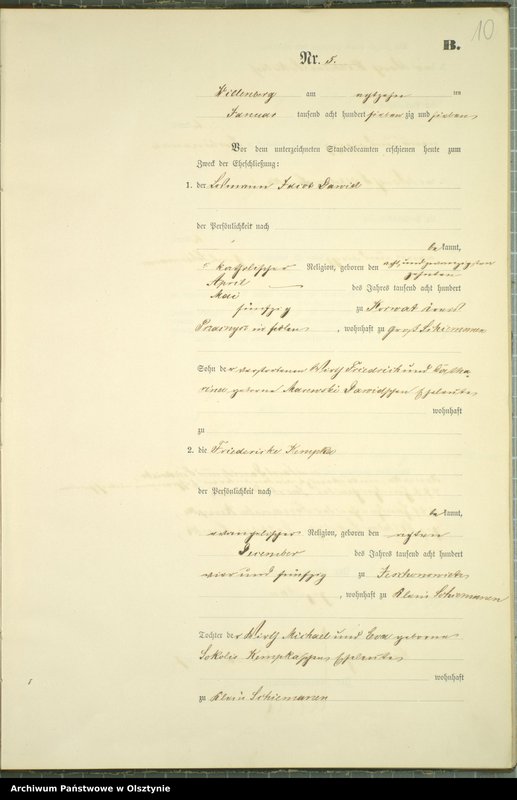 10
B.
Nr. 5.
Willenberg am achtzehn ten
Januar tausend acht hundert sieben zig und sieben
Vor dem unterzeichneten Standesbeamten erschienen heute zum
Zweck der Eheschließung:
1. der Losmann Jacob Dawid
der Persönlichkeit nach
be kannt,
katholischer Religion, geboren den acht und zwanzigsten
April des Jahres tausend acht hundert
Mai
fünfzig zu
, wohnhaft zu Groß Schiemanen
Sohn der verstorbenen Wirth Friedrich und Catha
rina geborne Dawidschen Eheleute
wohnhaft
zu
2. die Friederike Kempka
der Persönlichkeit nach
be kannt,
evangelischer Religion, geboren den achten
December des Jahres tausend acht hundert
vier und fünfzig zu
, wohnhaft zu Klein Schiemanen
Tochter der Wirth Michael und Eva geborene
Sokolis Kempkaschen Eheleute
wohnhaft
zu Klein Schiemanen
Archiwum Państwowe w Olsztynie